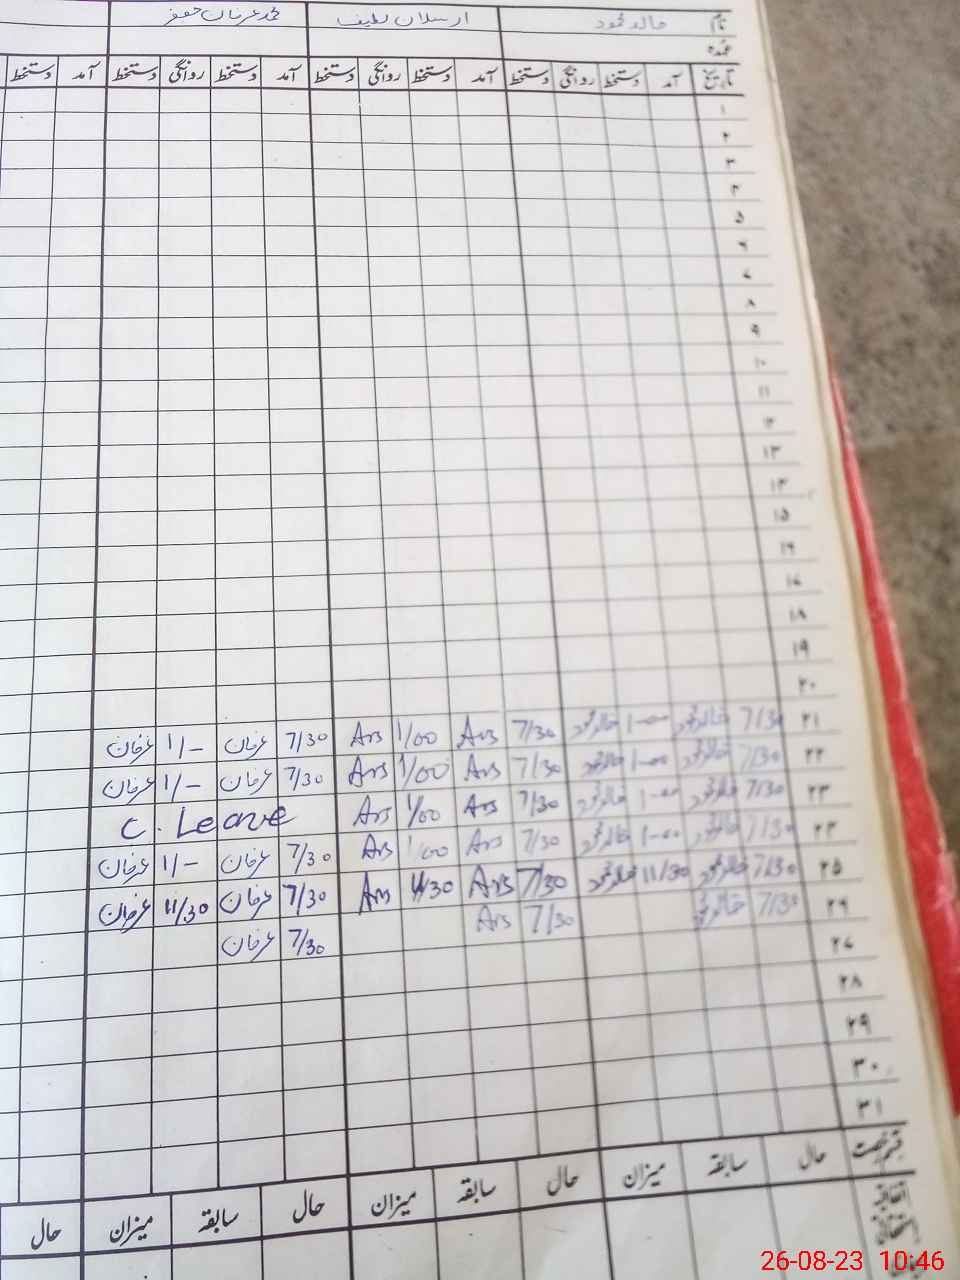 نام خالد محمود ارسلان لطیف محمد عرفان جعفر
عہدہ
تاریخ آمد دستخط روانگی دستخط آمد دستخط روانگی دستخط آمد دستخط روانگی دستخط آمد دستخط
۱
۲
۳
۴
۵
۶
۷
۸
۹
۱۰
۱۱
۱۲
۱۳
۱۴
۱۵
۱۶
۱۷
۱۸
۱۹
۲۰
۲۱ 7/30 خالد محمود 1-00 خالد محمود 7/30 Ars 1/00 Ars 7/30 عرفان 1/- عرفان
۲۲ 7/30 خالد محمود 1-00 خالد محمود 7/30 Ars 1/00 Ars 7/30 عرفان 1/- عرفان
۲۳ 7/30 خالد محمود 1-00 خالد محمود 7/30 Ars 1/00 Ars C. Leave
۲۴ 7/30 خالد محمود 1-00 خالد محمود 7/30 Ars 1/00 Ars 7/30 عرفان 1/- عرفان
۲۵ 7/30 خالد محمود 11/30 خالد محمود 7/30 Ars 11/30 Ars 7/30 عرفان 11/30 عرفان
۲۶ 7/30 خالد محمود 7/30 Ars 7/30 عرفان
۲۷
۲۸
۲۹
۳۰
۳۱
قسم رخصت حال سابقہ میزان حال سابقہ میزان حال سابقہ میزان حال
اتفاقیہ
استحقاقی
26-08-23 10:46